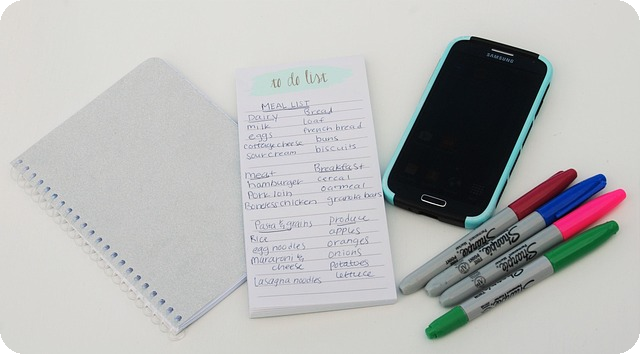 to do list
MEAL LIST
Dairy Bread
milk Loaf
eggs french bread
cottage cheese buns
sour cream biscuits
meat Breakfast
hamburger cereal
Pork loin oatmeal
Boneless chicken granola bars
Pasta & grains produce
Rice apples
egg noodles oranges
macaroni & onions
cheese Potatoes
Lasagna noodles lettuce
SAMSUNG
Sharpie
Sharpie
Sharpie
Sharpie